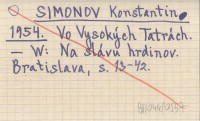 SIMONOV Konstantin
1954. Vo Vysokých Tatrách.
— W: Na slávu hrdinov.
Bratislava, s. 13-42.